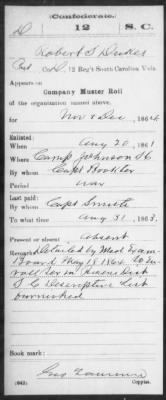 (Confederate.)
D 12 S. C.
Robert S. Dukes
Pvt, Co. D, 12 Reg't South Carolina Vols.
Appears on
Company Muster Roll
of the organization named above,
for Nov & Dec, 1864
Enlisted:
When Aug 20, 1861
Where Camp Johnson SC
By whom Capt
Period war
Last paid:
By whom Capt Smith
To what time Aug 31, 1863.
Present or absent absent
Remarks: Detailed by Med Exam
Board May 18 1864 to En-
roll Ser in Dist
S C Descriptive List
furnished
Book mark:
(642) Copyist.